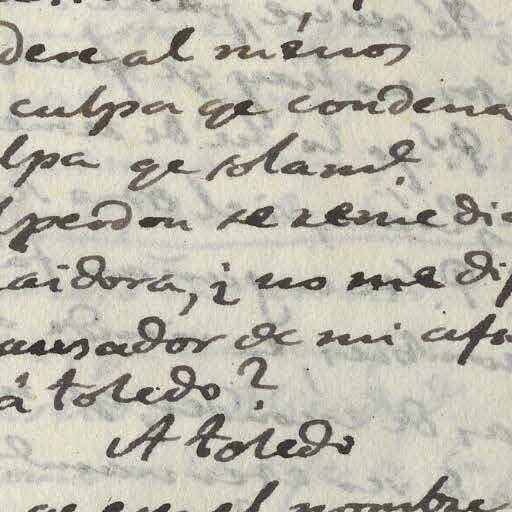 dere al ménos
culpa qe condena
lpa qe solamᵉ
l perdon se remedi
aidora, ¿ no me dij
ausador de mi afr
á toledo?
A toledo
qe en el nombre